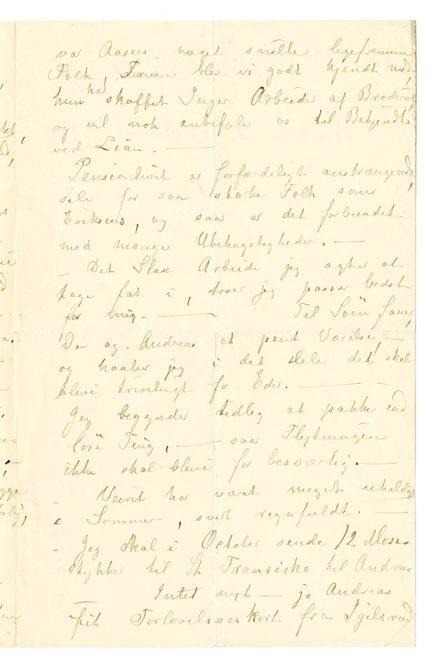 var Aasers meget snille ligefremme
Folk, Fruen blev vi godt kjendt med
hun ha skaffet Inger Arbeide af Broderi,
og vil nok anbefale os til Bekjendte
ved Lian. —
Pensionlivet er forfærdeligt anstrængende
selv for saa stærke Folk som
Eriksens, og saa er det forbundet
med mange Ubehageligheder. —
— Det Slags Arbeide jeg agter at
tage fat i, tror jeg passer bedst
for mig. — Til
Du og Andreas et pent Værelse, —
og haaber jeg i det Hele det skal
blive triveligt for Eder. —
Jeg begynder tidlig at pakke ind
løse Ting, — saa Flytningen
ikke skal blive for besværlig. —
Veiret har været meget uheldigt
i Sommer, svært regnfuldt. —
— Jeg skal i October sende 12
stykker til St Fransisko til Andreas
Intet nyt — jo Andreas
fik Forlovelseskort fra